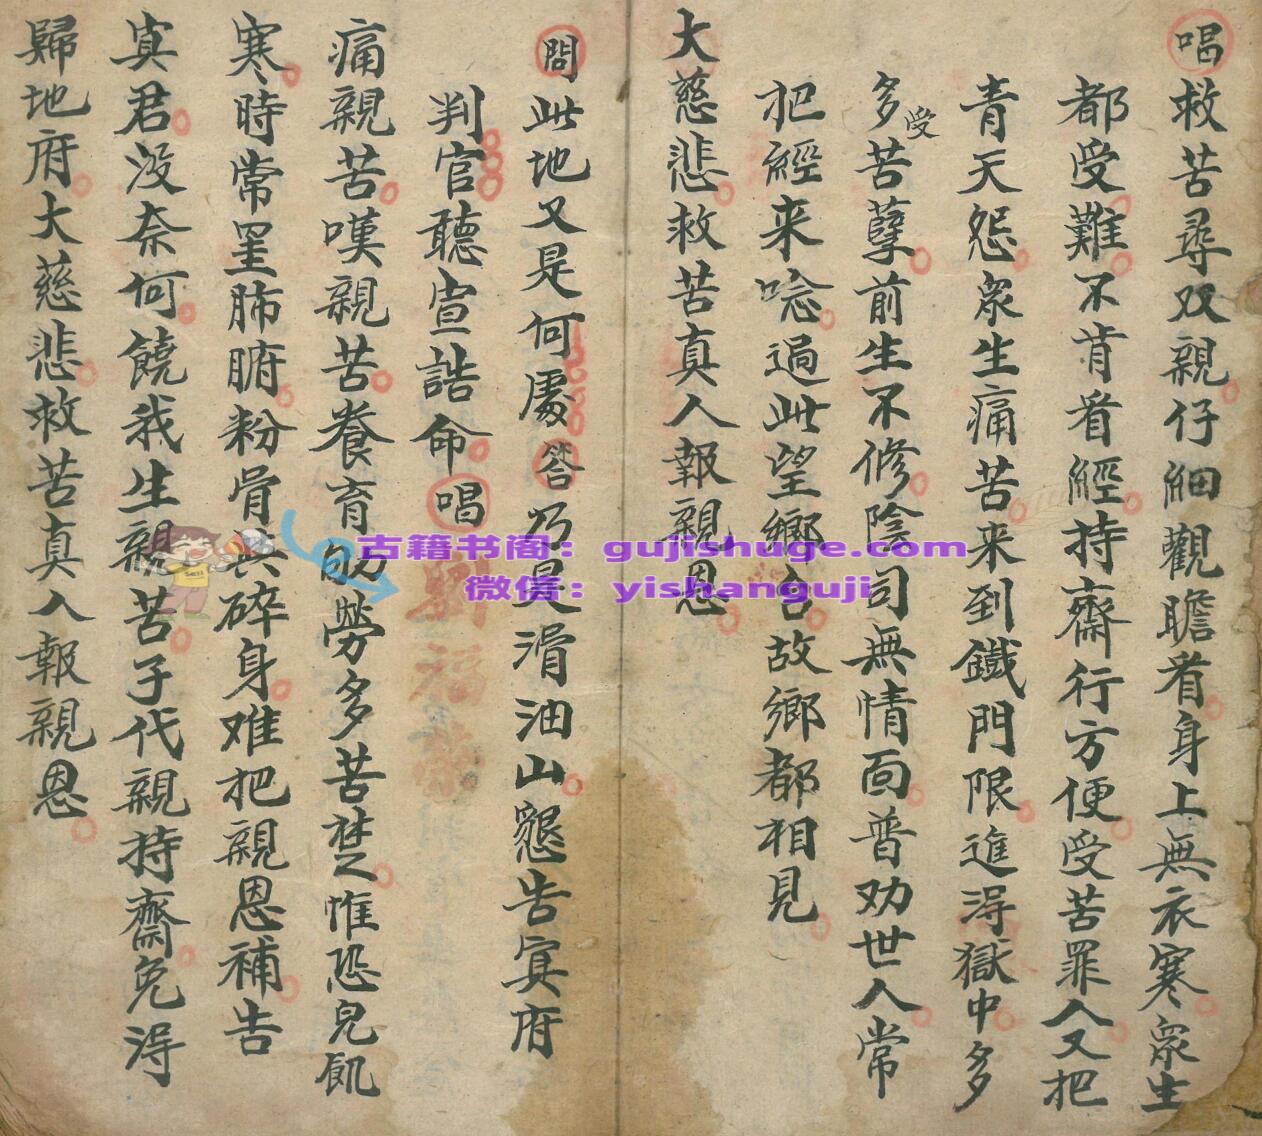 唱救苦尋双親仔細觀瞻看身上無衣寒衆生
都受難不肯看經持齋行方便受苦罪人又把
青天怨衆生痛苦来到鐵門限進淂獄中多
多受苦孽前生不修陰司無情面普劝世人常
把經来唸過此望鄉台故鄉都相見
大慈悲救苦真人報親恩
問此地又是何處答乃是滑油山懇告冥府
判官聽宣誥命唱
痛親苦嘆親苦養育劬勞多苦楚惟恐兒飢
寒時常罣肺腑粉骨與碎身难把親恩補告
真君没奈何饒我生親苦子代親持齋免淂
歸地府大慈悲救苦真人報親恩
劉福榮
古籍书阁：gujishuge.com
微信：yishanguji